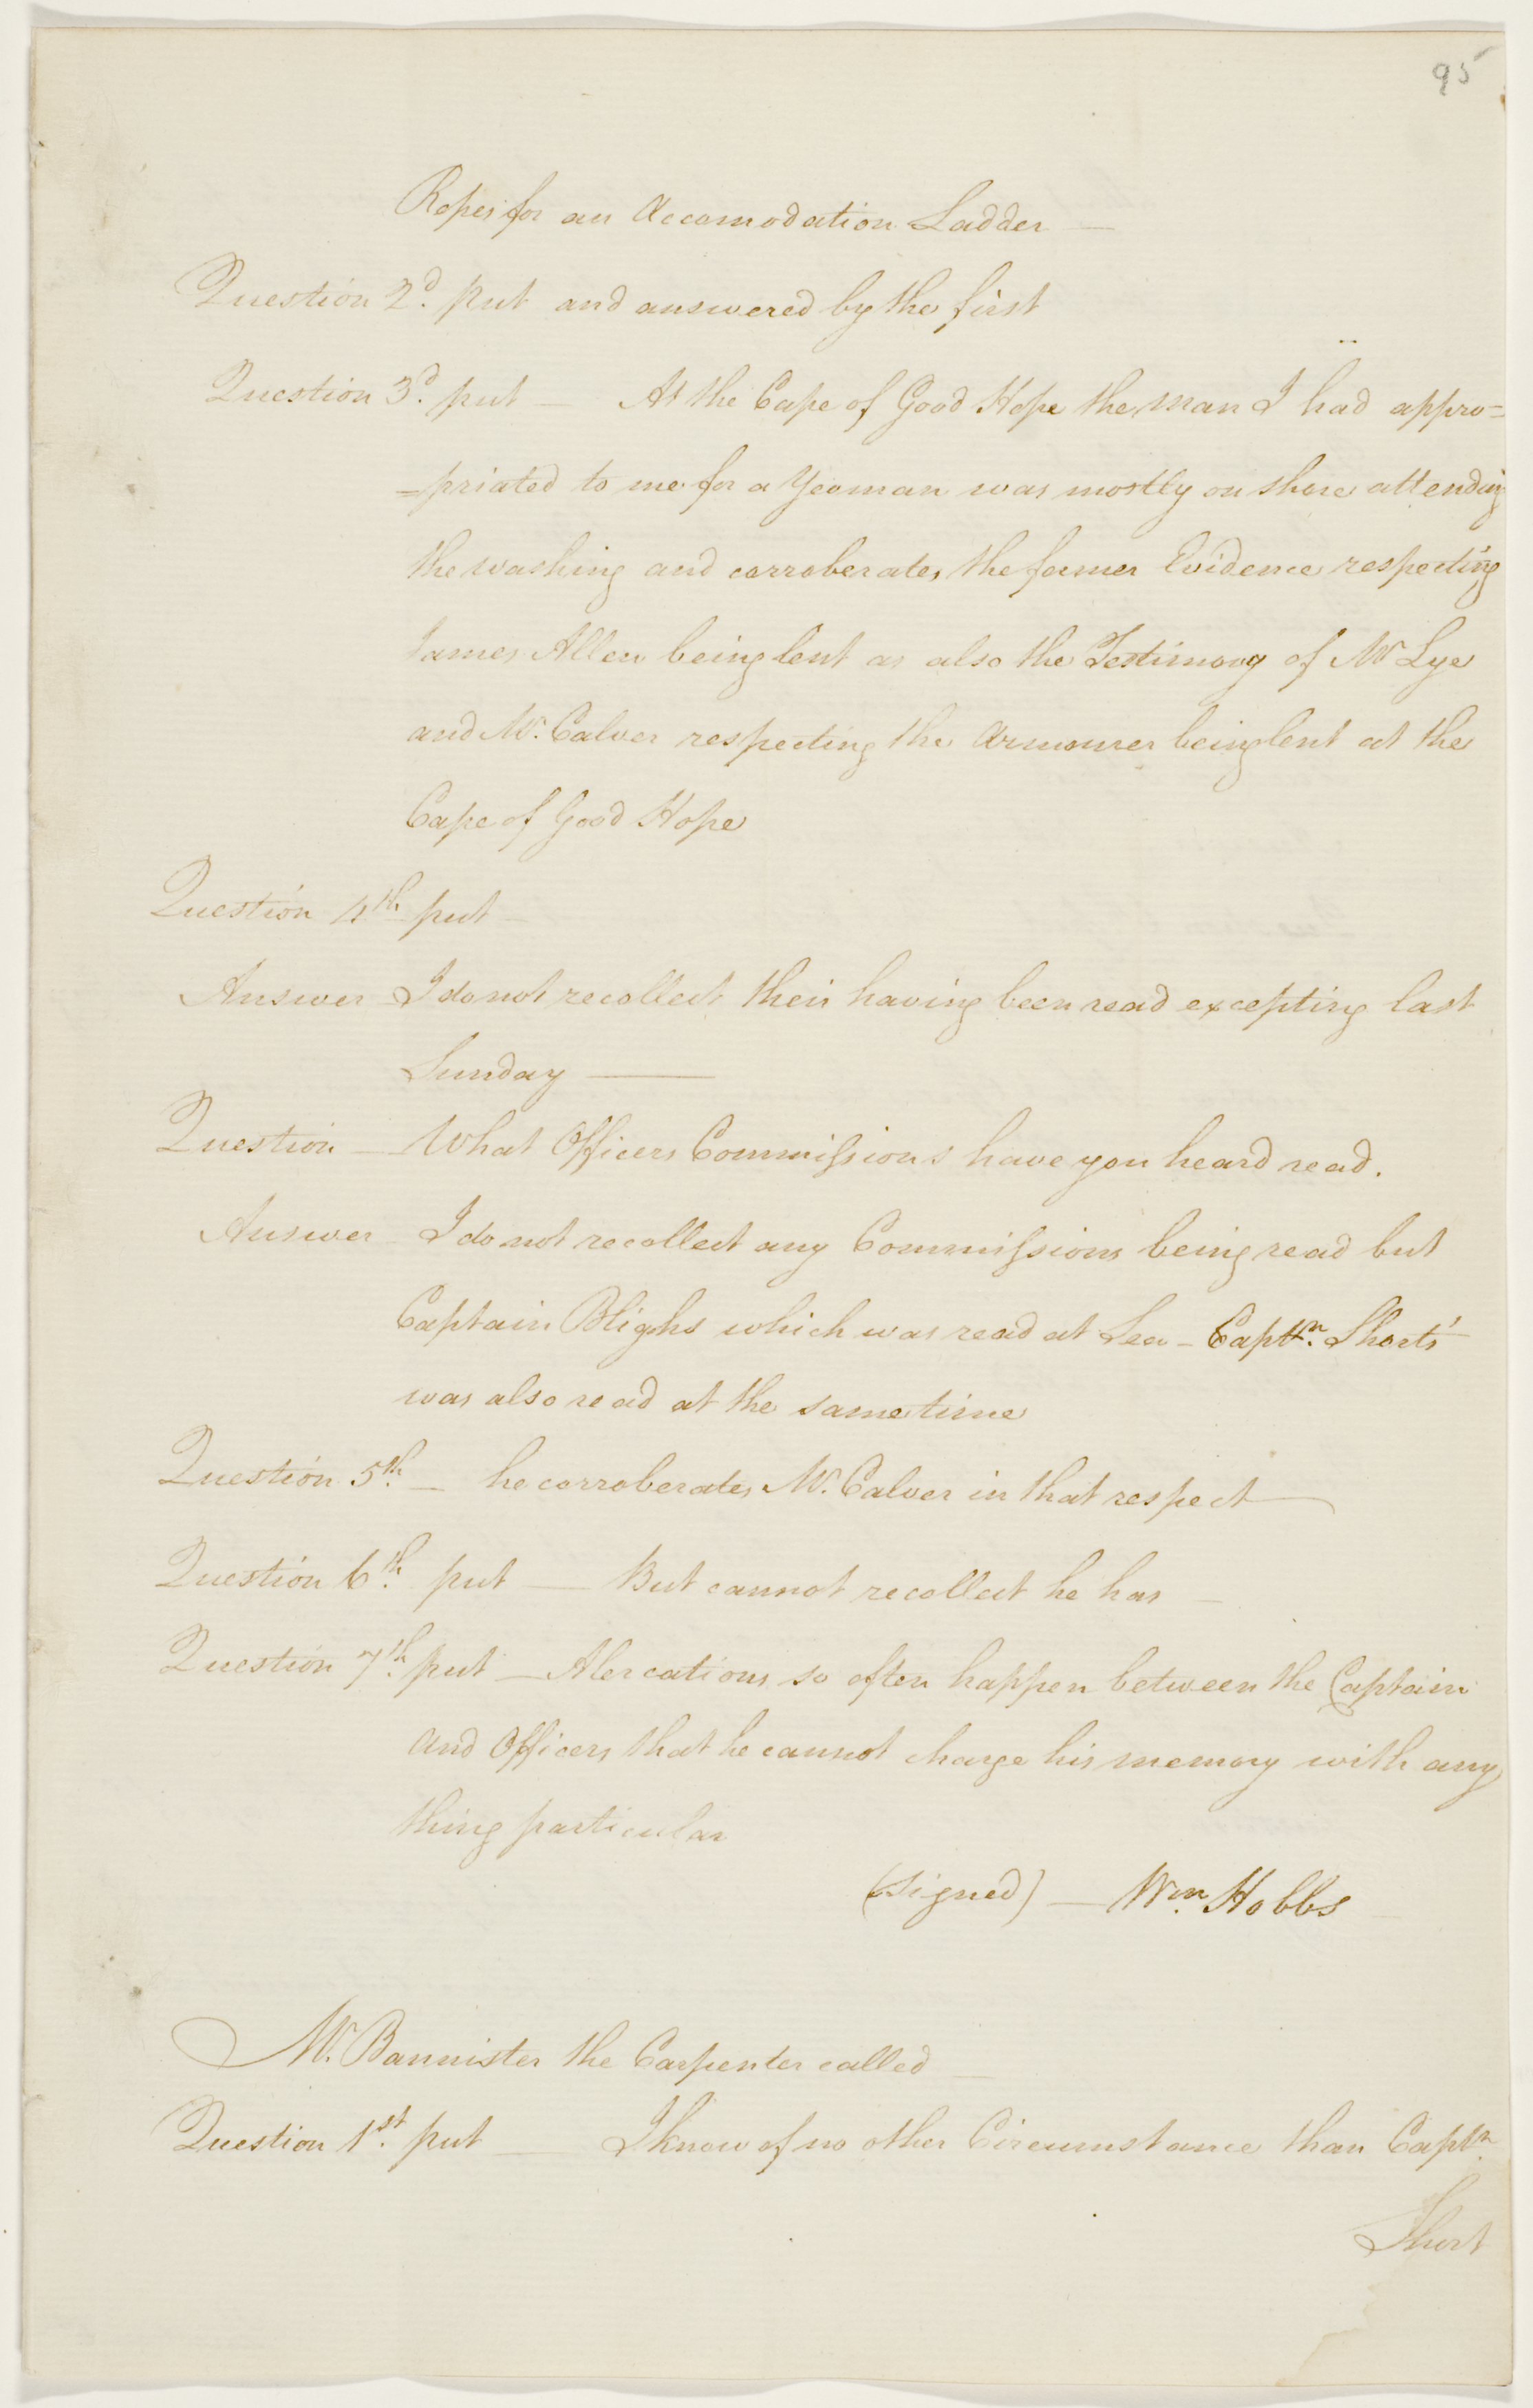 95
Ropes for an Accomodation Ladder —
Question 2d. put and answered by the first
Question 3d. put — At the Cape of Good Hope the man I had appro=
=priated to me for a Yeoman was mostly on shore attending
the washing and corroberates the former Evidence respecting
James Allen being lent as also the Testimony of Mr Lye
and Mr. Calver respecting the Armourer being lent at the
Cape of Good Hope
Question 4th put —
Answer I do not recollect their having been read excepting last
Sunday —
Question — What Officers Commissions have you heard read.
Answer I do not recollect any Commissions being read but
Captain Blighs which was read at Sea - Captn. Shorts'
was also read at the same time
Question 5th. — he corroberates Mr. Calver in that respect —
Question 6th. put — But cannot recollect he has —
Question 7th. put — Alercations so often happen between the Captain
and Officers that he cannot charge his memory with any
thing particular
(signed) — Wm. Hobbs
Mr. Bannister the Carpenter called —
Question 1st. put — I know of no other Circumstance than Captn.
Short